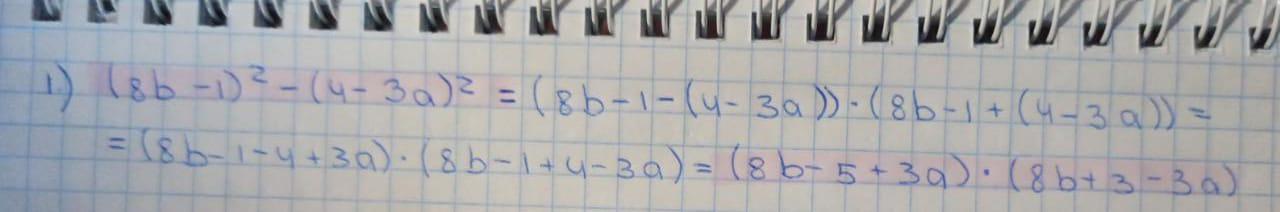 1.) (8b-1)² - (4-3a)² = (8b-1-(4-3a))·(8b-1+(4-3a)) =
= (8b-1-4+3a)·(8b-1+4-3a) = (8b-5+3a)·(8b+3-3a)